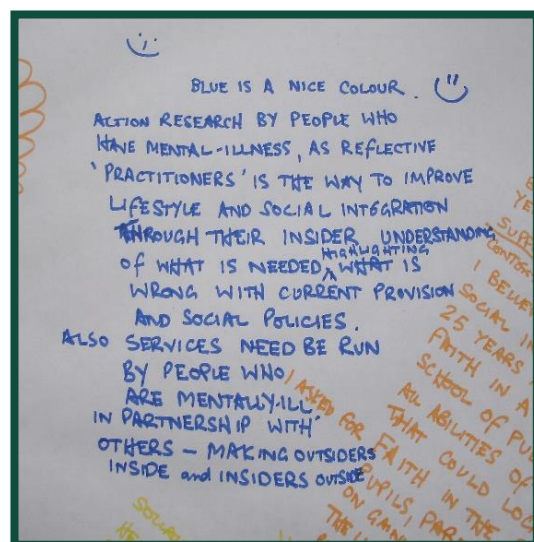 BLUE IS A NICE COLOUR.
ACTION RESEARCH BY PEOPLE WHO
HAVE MENTAL-ILLNESS, AS REFLECTIVE
'PRACTITIONERS' IS THE WAY TO IMPROVE
LIFESTYLE AND SOCIAL INTEGRATION
THROUGH THEIR INSIDER UNDERSTANDING
HIGHLIGHTING
OF WHAT IS NEEDED, WHAT IS
WRONG WITH CURRENT PROVISION
AND SOCIAL POLICIES.
ALSO SERVICES NEED BE RUN
BY PEOPLE WHO
ARE MENTALLY-ILL,
IN PARTNERSHIP WITH
OTHERS – MAKING OUTSIDERS
INSIDE and INSIDERS OUTSIDE
SUPP
I BELIEV
SOCIAL IN
25 YEARS
FAITH IN A
SCHOOL OF PU
ALL ABILITIES OF
THAT COULD LOC
I ASKED FOR FAITH IN THE
PUPILS, PAR
ON GAN
THE